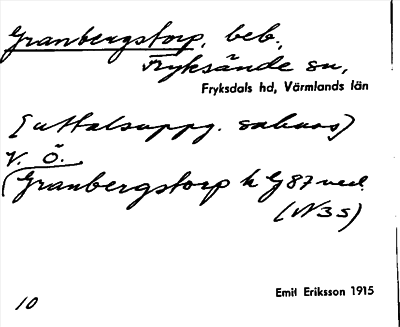 Granbergstorp, beb.,
Fryksände sn,
Fryksdals hd, Värmlands län
[uttalsuppg. saknas]
V. Ö.
Granbergstorp h G 87 ned.
(N 35)
10
Emil Eriksson 1915